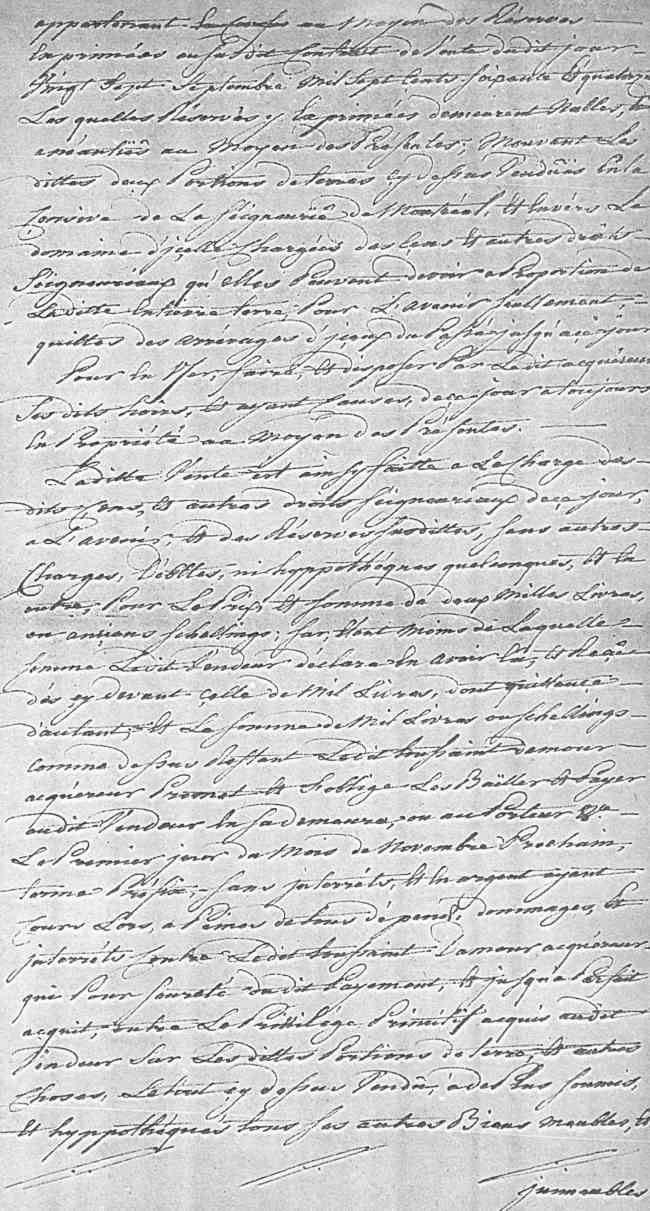 appartenant en Corps au Moyen des Réserves
Exprimées au susdit Contrat de Vente dudit jour
Vingt Sept Septembre Mil Sept Cents soixante Et quatorze
Les quelles Réserves y Exprimées demeurent Nulles, Et
anéantiës au Moyen des Présentes; Mouvant Les
dittes deux Portions de terres Cy dessus Venduës En la
Censive de La Seigneurië de Montréal, Et Envérs Le
domaine d'jcelle Chargéés des Cens Et autres droits
Seigneuriaux qu'elles Peuvent devoir a Proportion de
Laditte Entierre terre, Pour L'avenir seullement
quittes des arrérages d'jceux du Passé jusqu'a çe jour
Pour En User, faire, Et disposer Par Ledit acquéreur
Ses dits hoirs, Et ayant Causes, de çe jour a toujours
En Propriété au Moyen des Présentes.
Laditte Vente Est ainsy faitte a La Charge des
dits Cens, Et autres droits Seigneuriaux de çe jour,
a L'avenir, Et des Réserves susdittes, sans autres
Charges, Dêbttes, ni hyppothéques quelconques, Et En
outre, Pour Le Prix Et somme de deux Milles Livres,
ou anciens schellings; sur, Et tant Moins de Laquelle
somme Ledit Vendeur déclare En avoir Eu, Et Reçûe
dés cy devant çelle de Mil Livres, dont quittance
d'autant; Et La somme de Mil Livres ou schellings
comme dessus Restant Ledit toussaint demour
acquéreur Promet Et s'oblige Les Bailler Et Payer
audit Vendeur En sa demeure, ou au Porteur &ca
Le Premier jour du Mois de Novembre Prochain,
terme Préfix, sans jnterréts, Et En argent ayant
Cours Lors, a Peines de tous dépens, dommages, Et
jnterréts Contre Ledit toussaint Damour acquéreur
qui Pour sureté dudit Payement, Et jusqu'a Parfait
acquit, outre Le Privilége Primitif acquis audit
Vendeur Sur Les dittes Portions de terre, Et autres
Choses, Le tout cy dessus Vendû, a de Plus soumis,
Et hyppothéqués tous ses autres Biens meubles, Et
jmmeubles